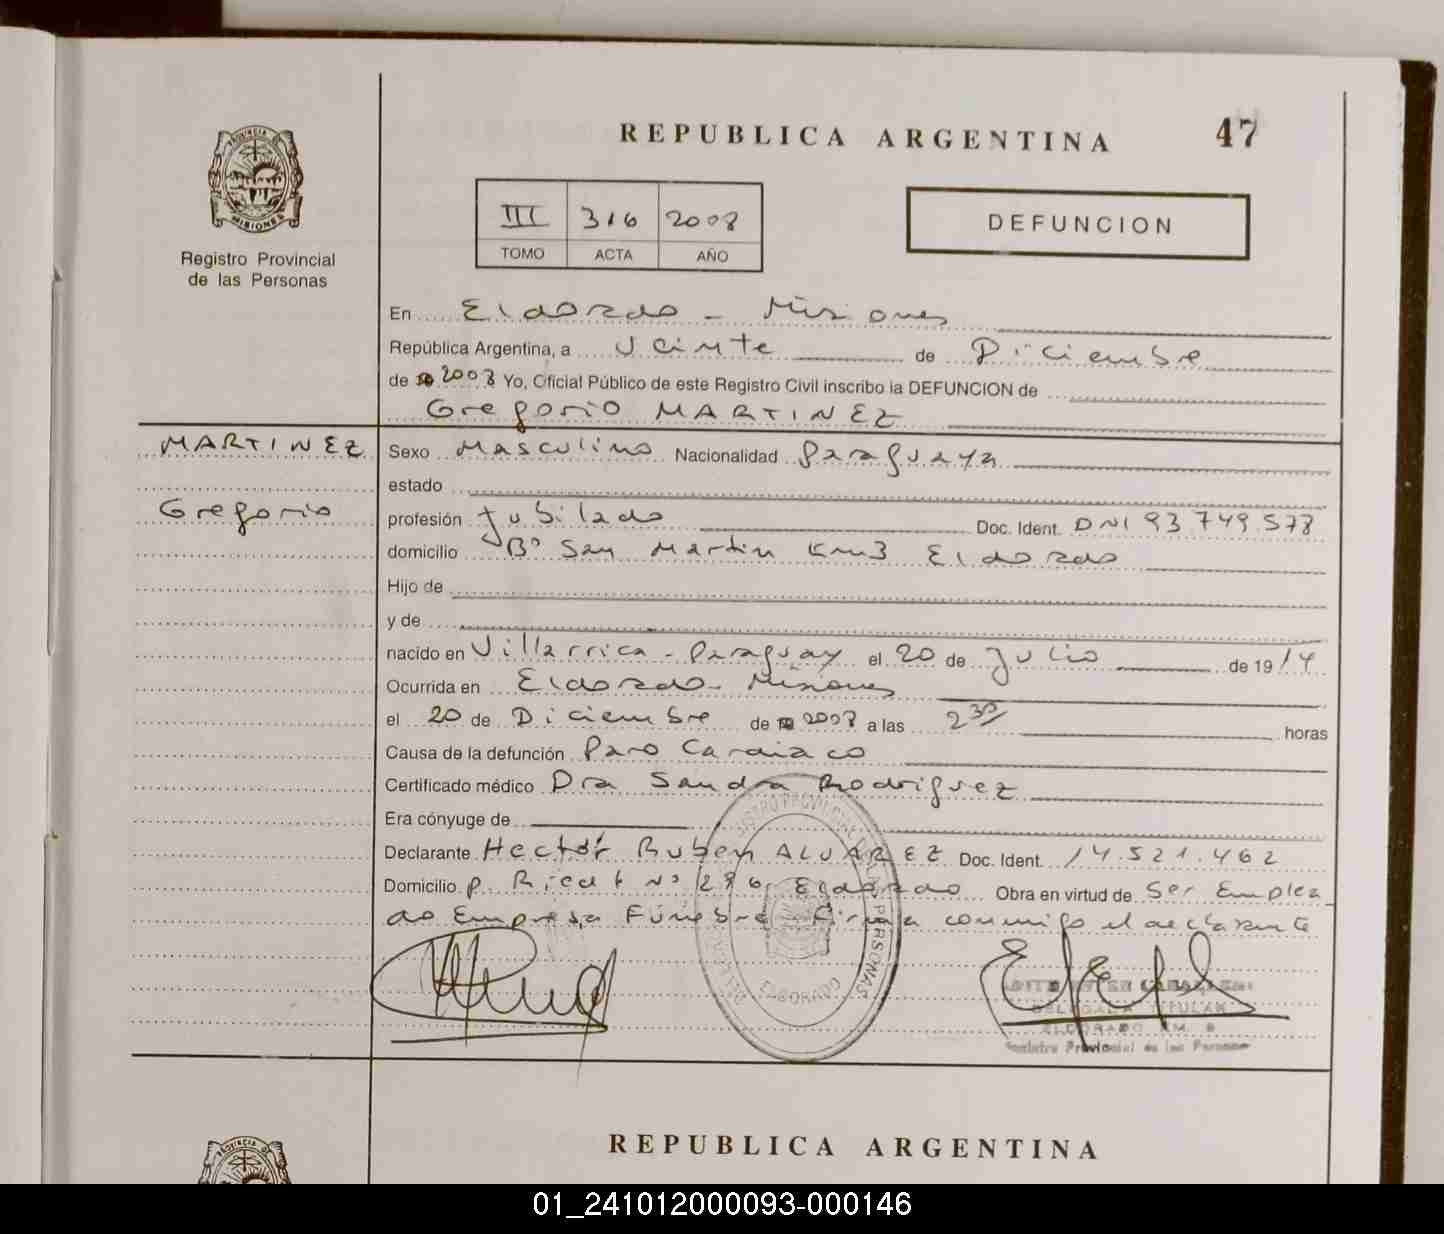 REPUBLICA ARGENTINA 47
PROVINCIA DE
MISIONES
Registro Provincial
de las Personas
III 316 2008
TOMO ACTA AÑO
DEFUNCION
En Eldorado - Misiones
República Argentina, a Veinte de Diciembre
de 2008 Yo, Oficial Público de este Registro Civil inscribo la DEFUNCION de
Gregorio MARTINEZ
MARTINEZ
Gregorio
Sexo Masculino Nacionalidad Paraguaya
estado
profesión Jubilado Doc. Ident. DNI 93749578
domicilio Bº San Martin Km3 Eldorado
Hijo de
y de
nacido en Villarrica - Paraguay el 20 de Julio de 1914
Ocurrida en Eldorado - Misiones
el 20 de Diciembre de 2008 a las 2 30 horas
Causa de la defunción Paro Cardiaco
Certificado médico Dra Sandra Rodriguez
Era cónyuge de
Declarante Hector Ruben ALVAREZ Doc. Ident. 14.521.462
Domicilio P. Nº 1286 Eldorado Obra en virtud de Ser Emplea
do Empresa Fúnebre Firma conmigo el declarante
PERSONAS
ELDORADO
DELEGADA TITULAR
ELDORADO KM. 
Registro Provincial de las Personas
REPUBLICA ARGENTINA
PROVINCIA DE
01_241012000093-000146